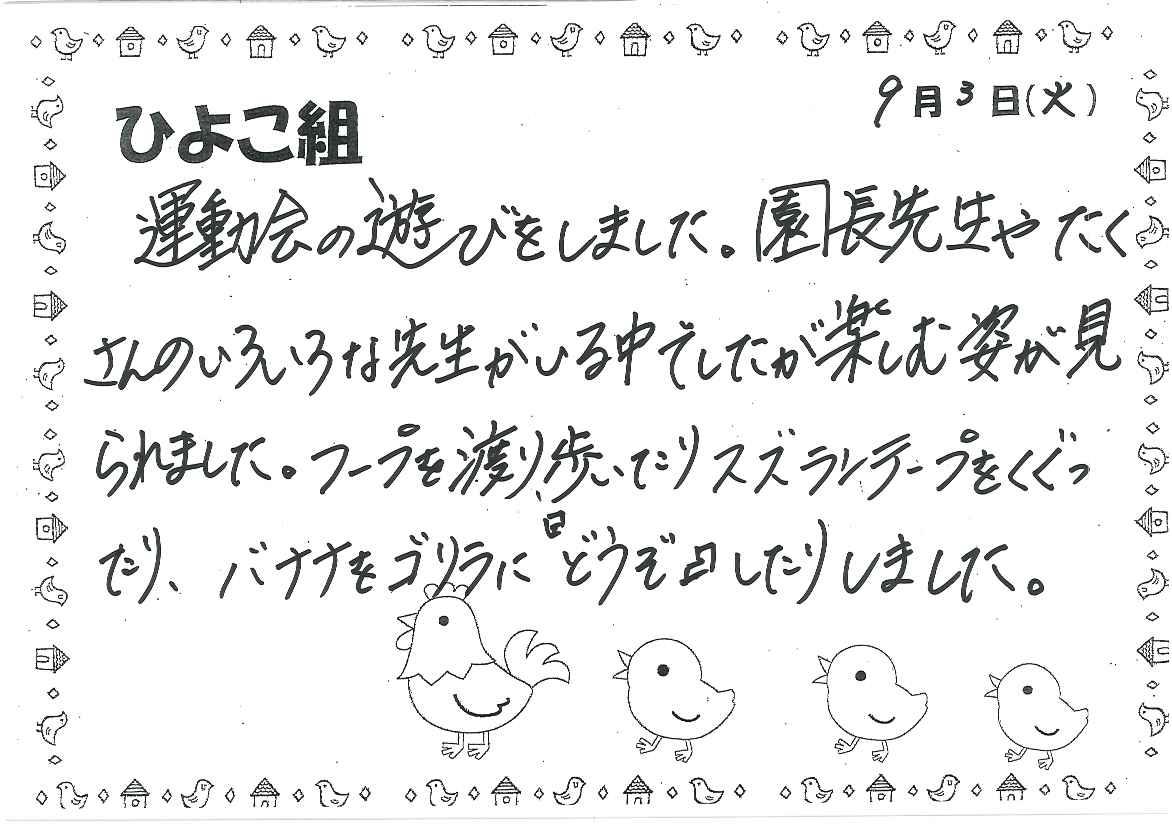 9月3日(火)
ひよこ組
運動会の遊びをしました。園長先生やたく
さんのいろいろな先生がいる中でしたが楽しむ姿が見
られました。フープを渡り歩いたりスズランテープをくぐっ
たり、バナナをゴリラに『どうぞ』したりしました。